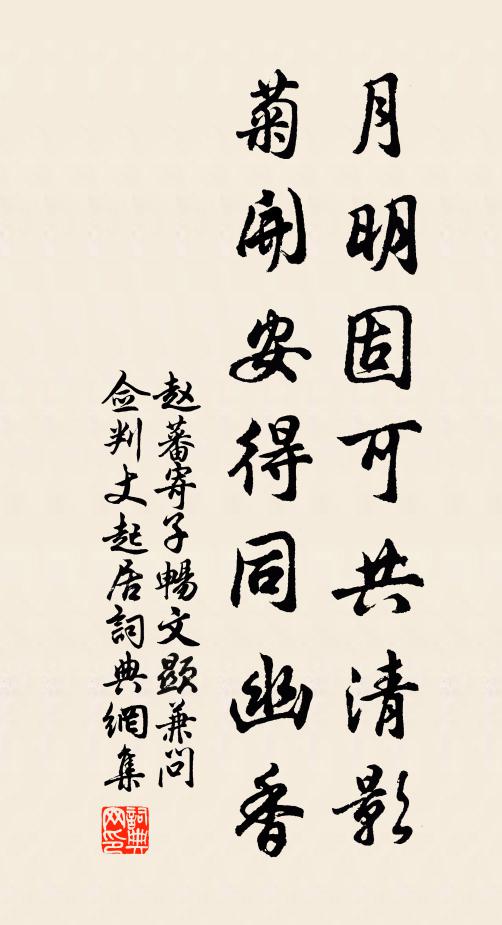 月明固可共清影
菊開安得同幽香
赵蕃寄子暢文顯兼问
佥判丈起居詞典網集
詞典
网印